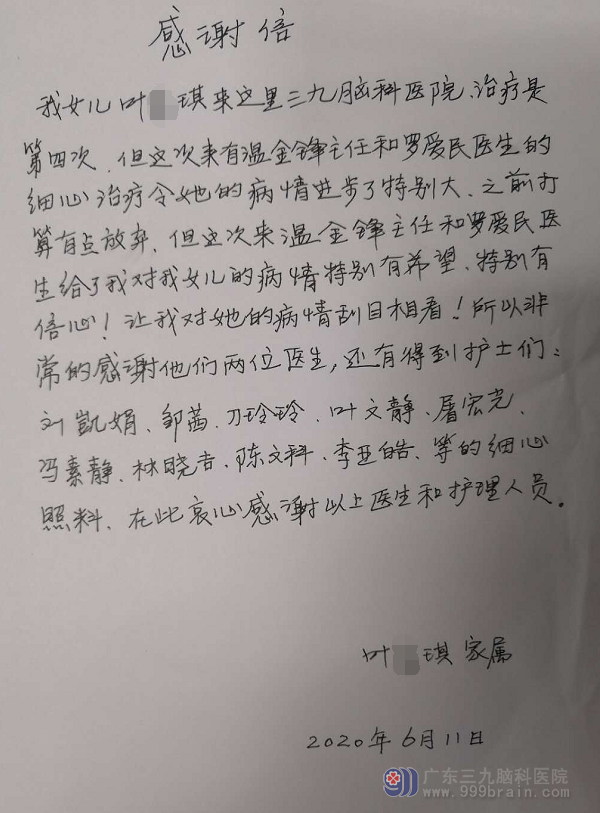 感谢信
我女儿叶 琪来这里三九脑科医院、治疗是
第四次、但这次来有温金锋主任和罗爱民医生的
细心治疗令她的病情进步了特别大、之前打
算有点放弃、但这次来温金锋主任和罗爱民医
生给了我对我女儿的病情特别有希望、特别有
信心！让我对她的病情刮目相看！所以非
常的感谢他们两位医生，还有得到护士们：
刘凯娟、邹茜、刀玲玲、叶文静、屠宏光、
冯素静、林晓吉、陈文科、李亚皓、等的细心
照料、在此哀心感谢以上医生和护理人员。
叶 琪 家属
2020年6月11日
广东三九脑科医院
www.999brain.com